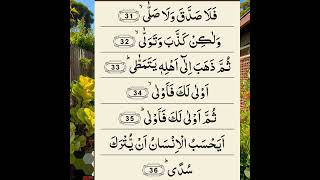 فَلَا صَدَّقَ وَلَا صَلّٰىۙ 31
وَلٰكِنْ كَذَّبَ وَتَوَلّٰىۙ 32
ثُمَّ ذَهَبَ اِلٰٓى اَهْلِهٖ يَتَمَطّٰىؕ 33
اَوْلٰى لَكَ فَاَوْلٰىۙ 34
ثُمَّ اَوْلٰى لَكَ فَاَوْلٰىؕ 35
اَيَحْسَبُ الْاِنْسَانُ اَنْ يُّتْرَكَ
سُدًىؕ 36